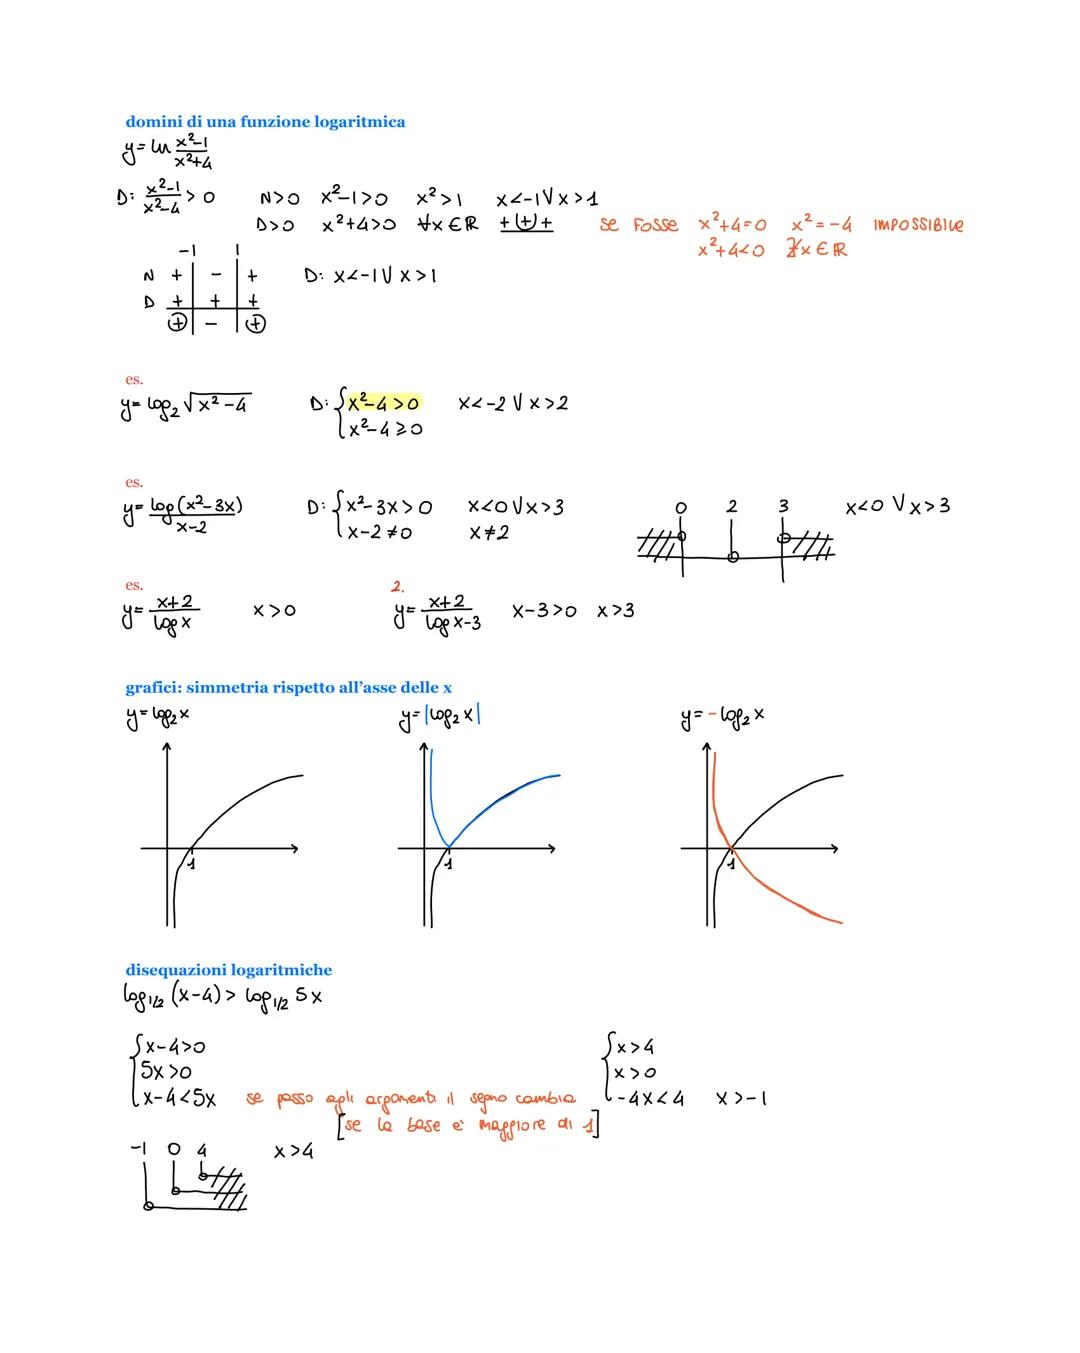 domini di una funzione logaritmica
y= ln x²-1/x²+4
D: x²-1/x²-4 > 0 N>0 x²-1>0 x²>1 x<-1 V x>1
D>0 x²+4>0 ∀x∈R +(+)+ se fosse x²+4=0 x²=-4 IMPOSSIBILE
x²+4<0 ∄x∈R
-1 1
N + - + D: x<-1 V x>1
D + + +
(+) - (+)
es.
y= log₂ √x²-4 D: { x²-4>0 x<-2 V x>2
x²-4≥0
es.
y= log(x²-3x)/x-2 D: { x²-3x>0 x<0 V x>3 0 2 3 x<0 V x>3
x-2≠0 x≠2
es. 2.
y= x+2/log x x>0 y= x+2/log x-3 x-3>0 x>3
grafici: simmetria rispetto all'asse delle x
y=log₂x y=|log₂x| y=-log₂x
1 1 1
disequazioni logaritmiche
log1/2 (x-4) > log1/2 5x
{ x-4>0 { x>4
5x>0 x>0
x-4<5x se passo agli argomenti il segno cambia -4x<4 x>-1
[se la base e' maggiore di 1]
-1 0 4 x>4